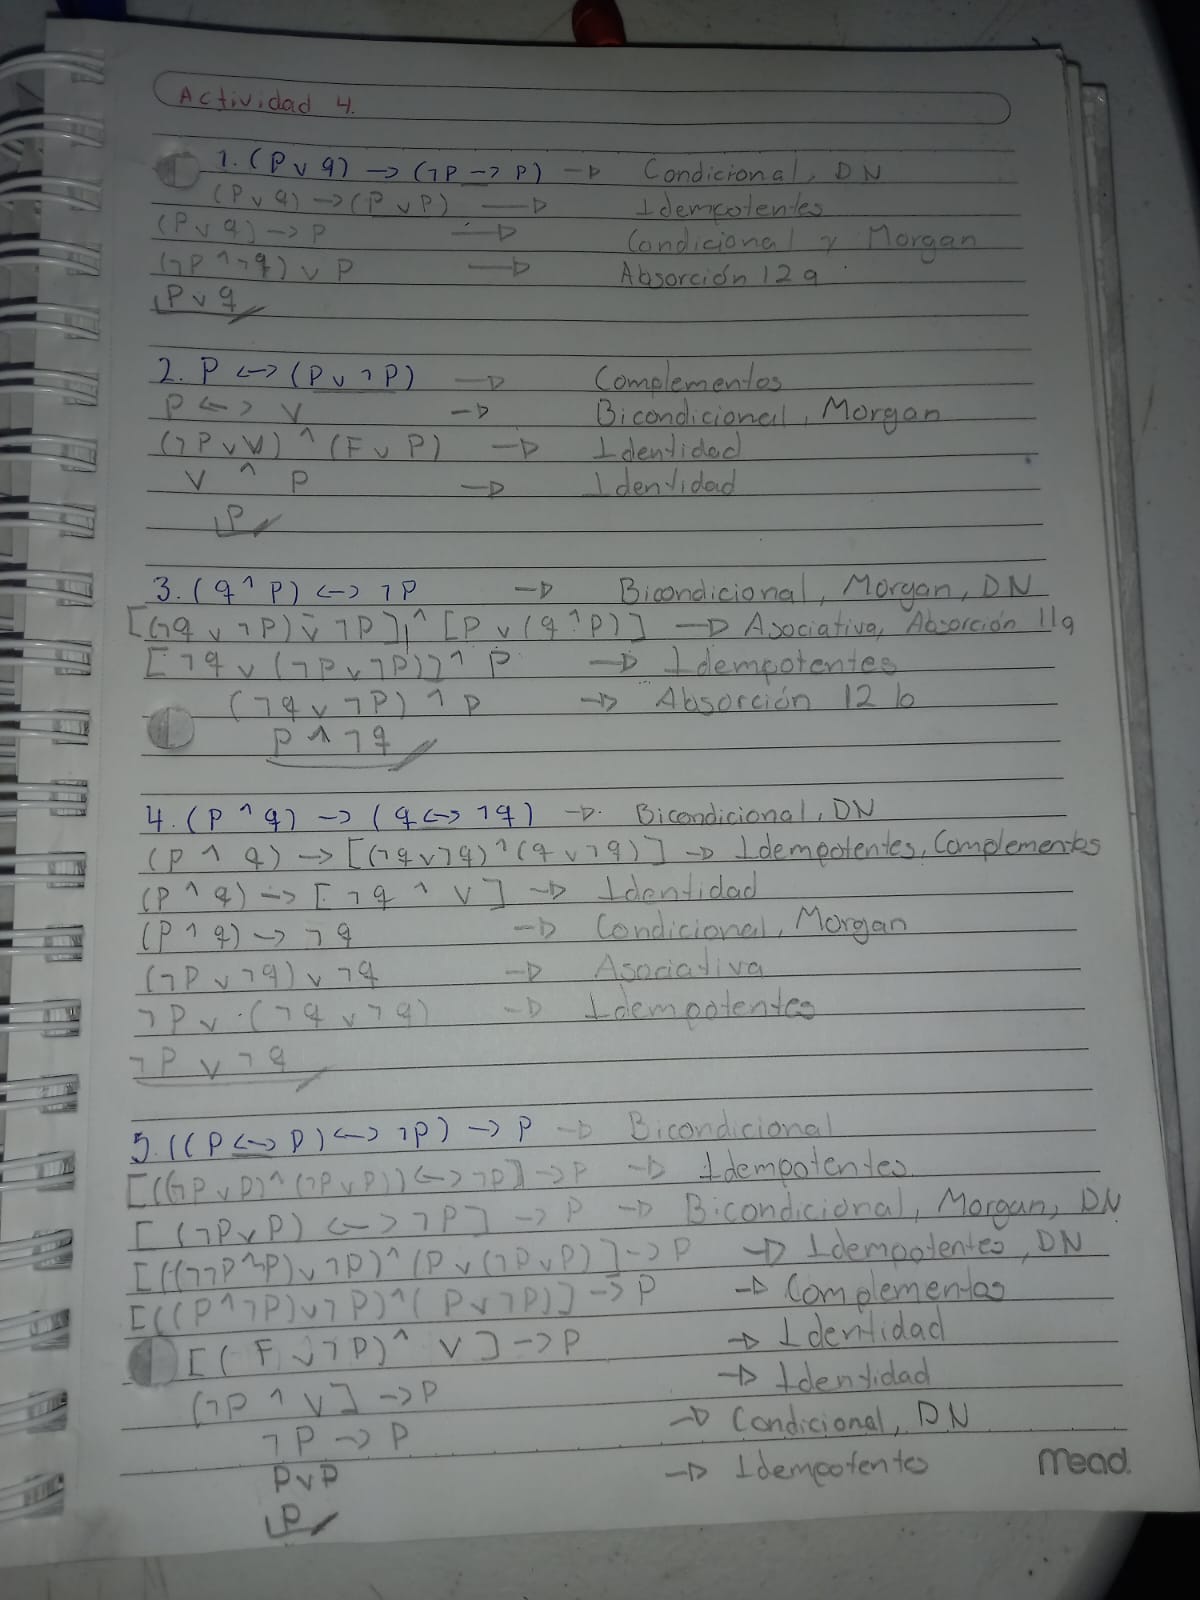 Actividad 4.
1. (P v q) -> (¬P -> P) -> Condicional, DN
(P v q) -> (P v P) -> Idempotentes
(P v q) -> P -> Condicional y Morgan
(¬P ^ ¬q) v P -> Absorción 12 a
P v q
2. P <-> (P v ¬P) -> Complementos
P <-> V -> Bicondicional, Morgan
(¬P v V) ^ (F v P) -> Identidad
V ^ P -> Identidad
P
3. (q ^ P) <-> ¬P -> Bicondicional, Morgan, DN
[(¬q v ¬P) v ¬P] ^ [P v (q ^ P)] -> Asociativa, Absorción 11a
[¬q v (¬P v ¬P)] ^ P -> Idempotentes
(¬q v ¬P) ^ P -> Absorción 12 b
P ^ ¬q
4. (P ^ q) -> (q <-> ¬q) -> Bicondicional, DN
(P ^ q) -> [(¬q v ¬q) ^ (q v ¬q)] -> Idempotentes, Complementos
(P ^ q) -> [¬q ^ V] -> Identidad
(P ^ q) -> ¬q -> Condicional, Morgan
(¬P v ¬q) v ¬q -> Asociativa
¬P v (¬q v ¬q) -> Idempotentes
¬P v ¬q
5. ((P <-> P) <-> ¬P) -> P -> Bicondicional
[((¬P v P) ^ (¬P v P)) <-> ¬P] -> P -> Idempotentes
[(¬P v P) <-> ¬P] -> P -> Bicondicional, Morgan, DN
[((¬¬P ^ ¬P) v ¬P) ^ (P v (¬P v P)] -> P -> Idempotentes, DN
[((P ^ ¬P) v ¬P) ^ (P v ¬P)] -> P -> Complementos
[(F v ¬P) ^ V] -> P -> Identidad
(¬P ^ V] -> P -> Identidad
¬P -> P -> Condicional, DN
P v P -> Idempotentes
P
Mead